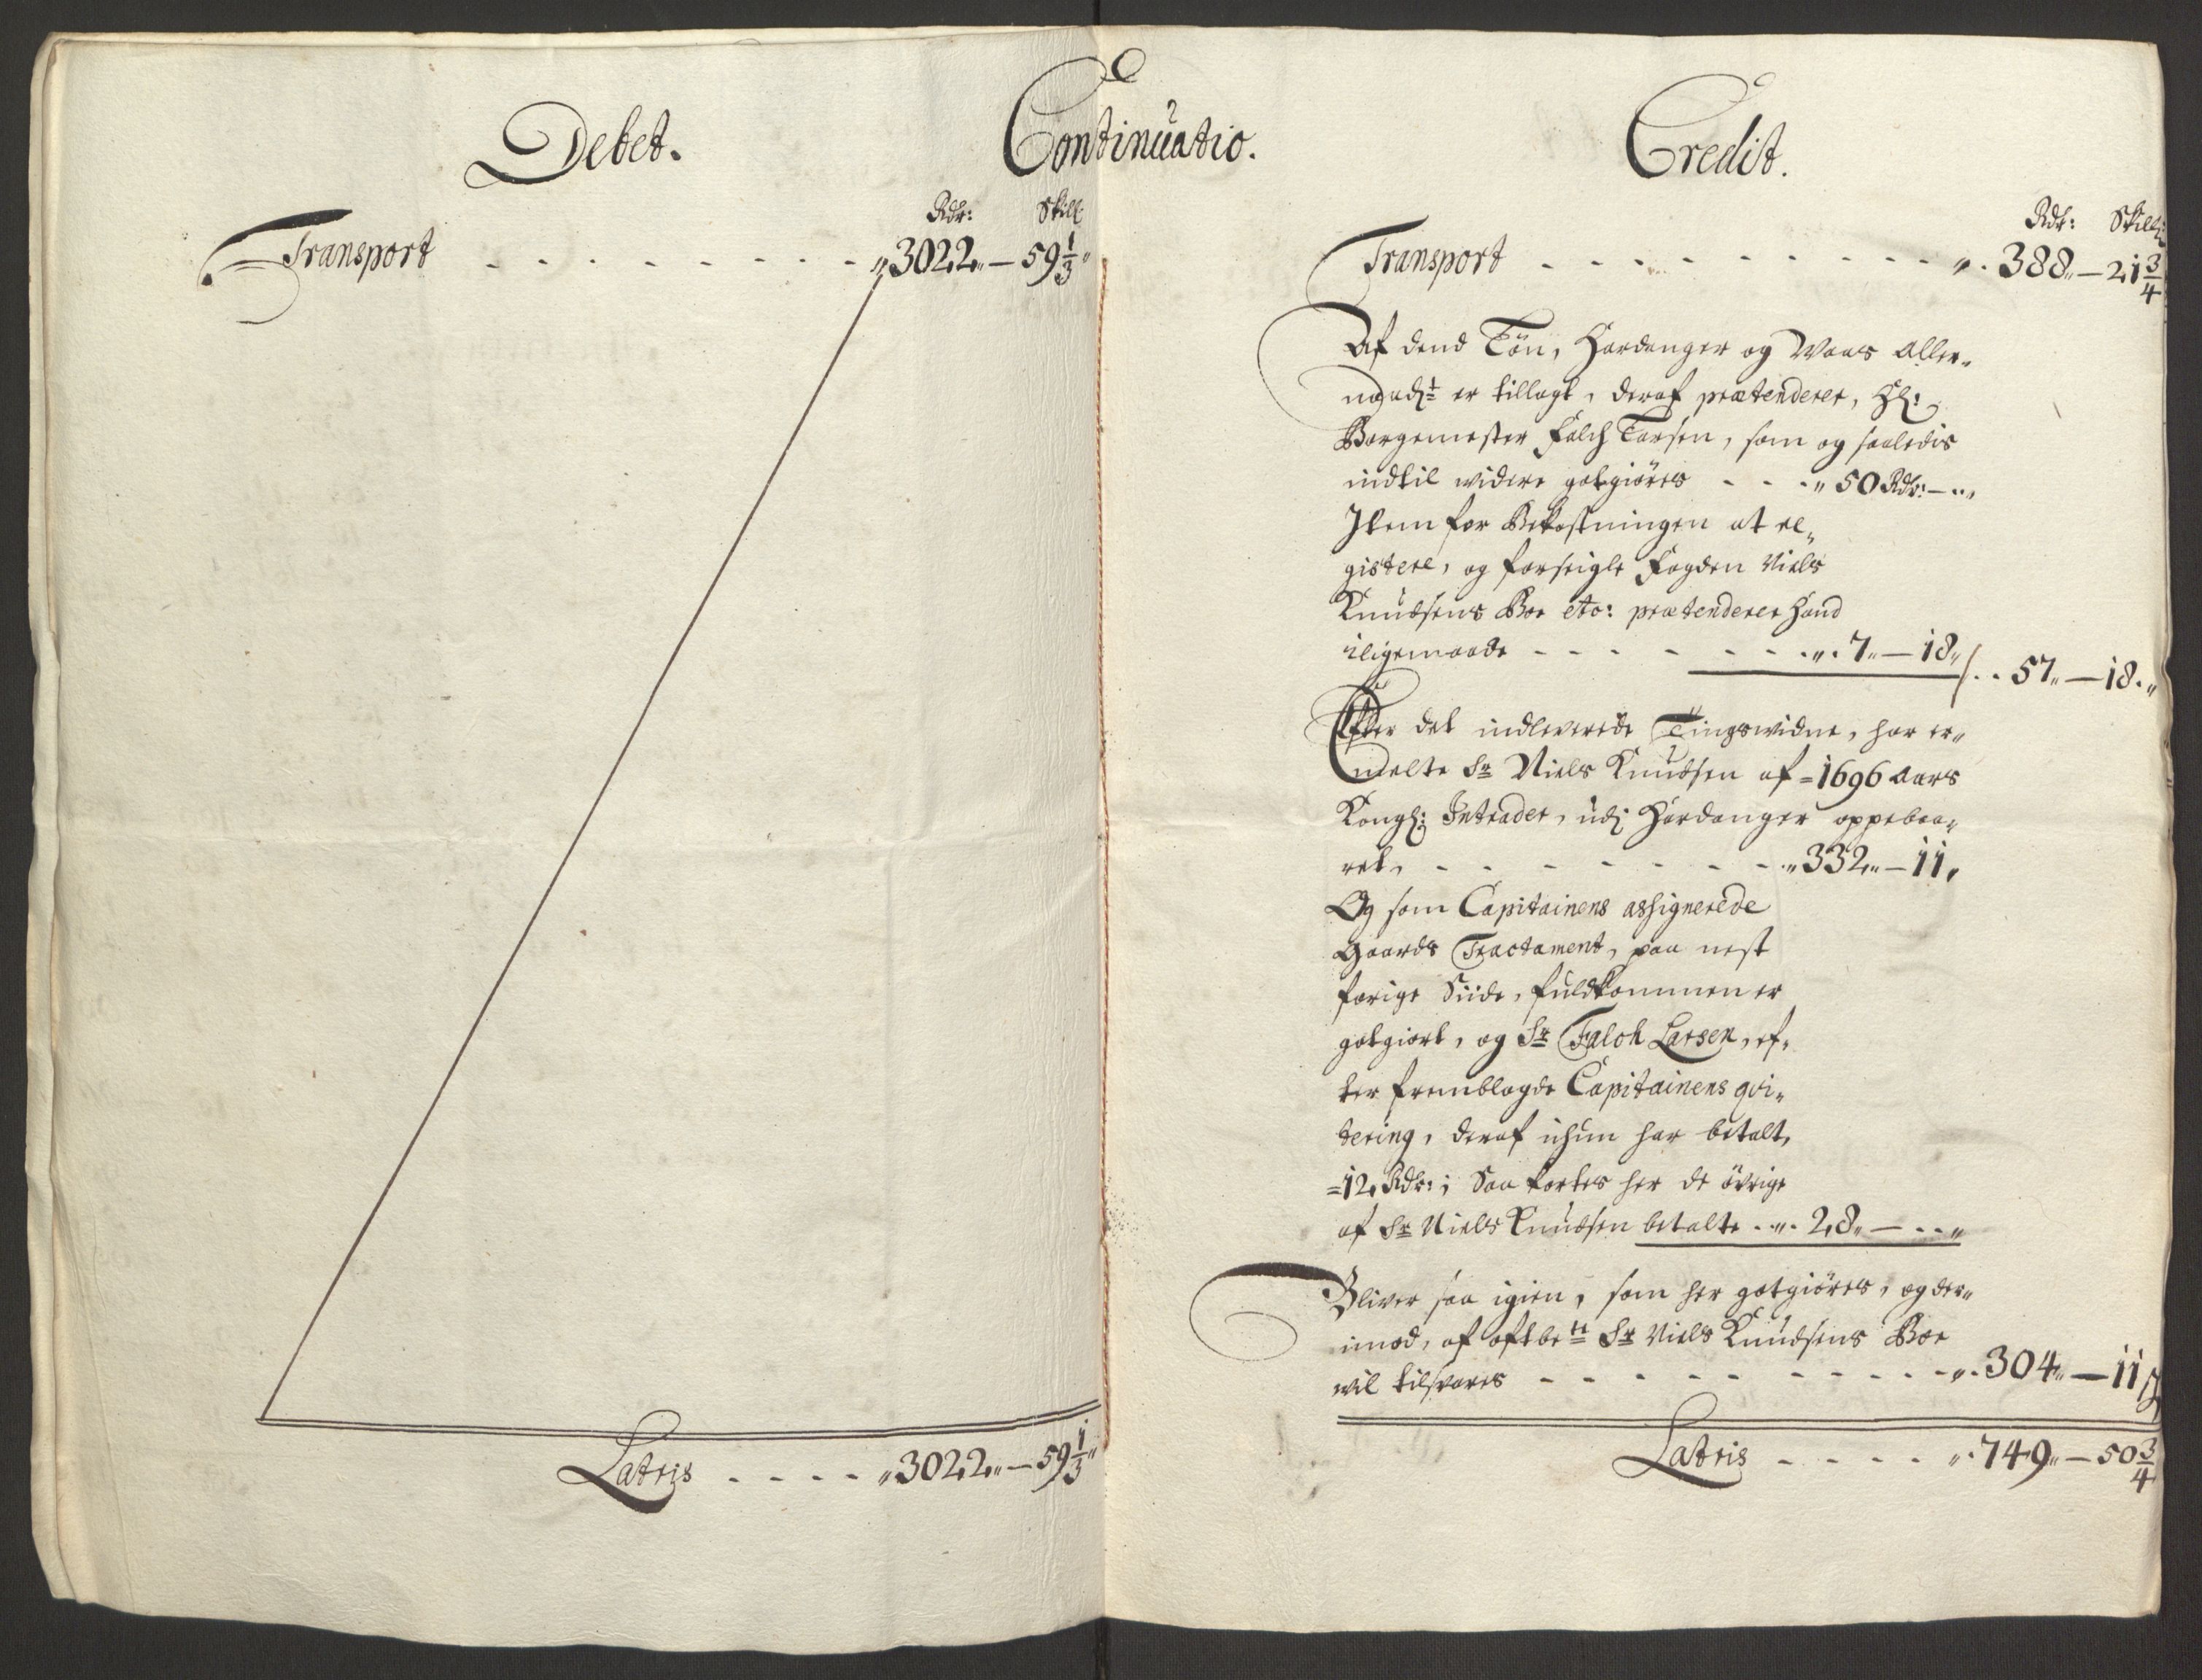 Debet.
Continuatio.
Rdr: Skill
Transport - - - - - - - - „3022„ — 59 1/3„
Latris - - - - „3022„ — 59 1/3„
Credit.
Rdr: Skill:
Transport - - - - - - - - - - „. 388„ — 21 3/4
Af dend Løn, Hardanger og Waas Aller„
naadst er tillagt, deraf prætenderer, Hr:
Borgemester Falch Larsen, som og saaledis
indtil widere godgiöres - - - „ 50 Rdr: — „
Item for Bekostningen at re„
gistere, og forseigle Fogden Niels
Knudsens Boe etc: prætenderer Hand
iligemaade - - - - - - - „. 7„ — 18„ / . . 57„ — 18. „
Efter det indleverede Tingswidne, har er„
melte Sr Niels Knudsen af = 1696 Aars
Kongl: Intrader, udj Hardanger oppebaa„
ret, - - - - - - - - „332„ — 11„
Og som Capitainens assignerede
Gaards Tractament, paa nest
forige Siide, fuldkommen er
godgiort, og Sr Falch Larsen, ef„
ter fremblagde Capitainens qvi„
tering, deraf ichun har betalt,
= 12, Rdr: ; Saa kortes her de övrige
af Sr Niels Knudsen betalte . „. 28„ — - - „
Bliver saa igien, som her godgiöres, og der„
imod, af oftbete Sr Niels Knudsens Boe
wil tilsvares - - - - - - - - - - „. 304„ — 11„
Latris - - - - „. 749„ — 50 3/4